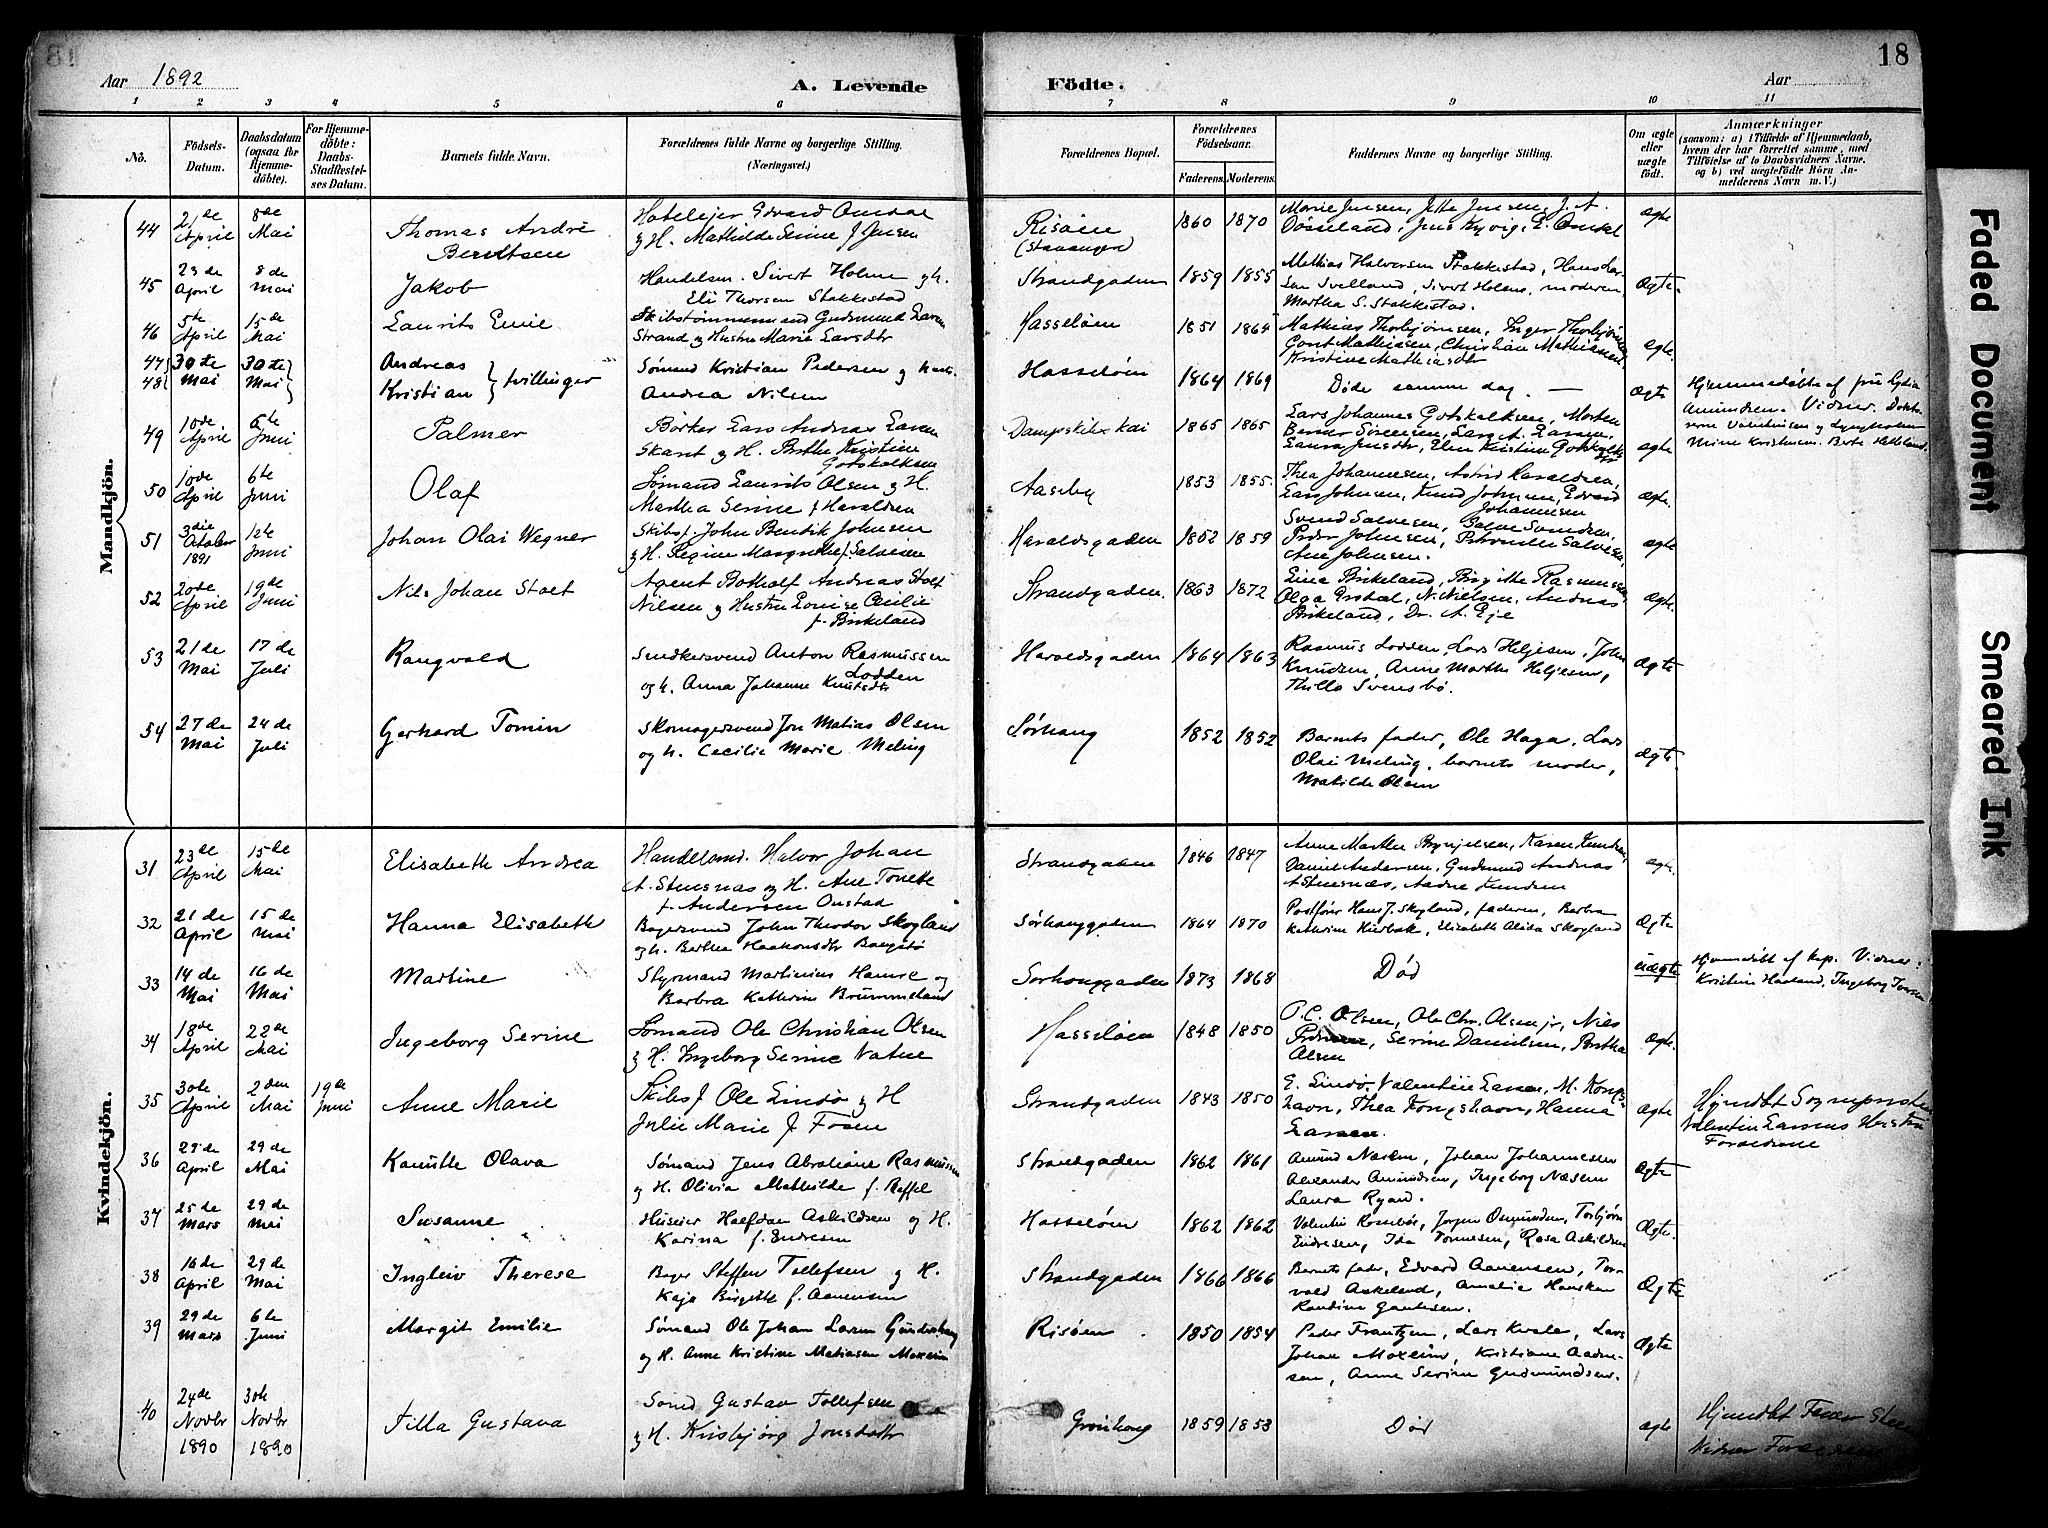 18
Aar 1892
A. Levende Födte.
Aar
1 2 3 4 5 6 7 8 9 10 11
No.
Födsels-Datum.
Daabsdatum (ogsaa for Hjemme-döbte).
For Hjemme-döbte: Daabs-Stadfæstel-ses Datum.
Barnets fulde Navn.
Forældrenes fulde Navne og borgerlige Stilling. (Næringsvei.)
Forældrenes Bopæl.
Forældrenes Födselsaar.
Faderens. Moderens.
Faddernes Navne og borgerlige Stilling.
Om ægte eller uægte födt.
Anmærkninger
(saasom: a) i Tilfælde af Hjemmedaab,
hvem der har forrettet samme, med
Tilföielse af to Daabsvidners Navne,
og b) ved uægtefödte Börn An-
melderens Navn m. V.)
Mandkjön.
44 21de April 8de Mai Thomas André Berntsen
& H. Mathilde Serine f Jensen
Risøen (Stavanger) 1860 1870 Marie Jensen, Jette Jensen, J. A. ægte
45 23de April 8de Mai Jakob
Handelsm. Sivert Holme og h.
Eli Thorsen Stakkestad
Strandgaden 1859 1855 Mathias Halvorsen Stakkestad, Hans Lar-
sen Svelland, Sivert Holme, moderen,
Martha S. Stakkestad. Ægte.
46 5te April 15de Mai Laurits Emil
Skibstømmermand Gudmund Larsen
Strand og Hustru Marie Larsdtr
Hasseløen 1851 1864 Mathias Thorbjörnsen, Inger Thorbjörnsen,
Gont Mathiassen, Christian Mathiassen,
Kristine Mathiasdtr ægte.
47 48 30te Mai 30te Mai Andreas Kristian } tvillinger
Sømand Kristian Pedersen og
Andrea Nilsen
Hasseløen 1864 1869 Døde samme dag. — Ægte
Hjemmedøbte af fru Lydia
Amundsen. Vidner.
49 10de April 6te Juni Palmer
Børker Lars Andreas Larsen
Skaret & H. Berthe Kristine
Gotskalksen
Dampskibskai 1865 1865 Lars Johannes Gotskalksen, Morten
ægte
50 10de April 6te Juni Olaf
Sømand Laurits Olsen & H.
Martha Serine f Haraldsen
Aasebø 1853 1855. Thea Johannesen, Astrid Haraldsen,
Lars Johnsen, Knud Johnsen, Edvard
Johannesen ægte.
51 3die Octobr 1891 12te Juni Johan Olai Wegner
Skibsf. John Bendik Johnsen
Haraldsgaden 1852 1859 Svend Salvesen,
Peder Johnsen, Petronille Salvesen,
Ane Johnsen. ægte
52 20de April 19de Juni Nils Johan Stolt
Agent Botholf Andreas Stolt
Nilsen og Hustru Louise Cecilie
f. Birkeland
Strandgaden. 1863 1872 Lina Birkeland, Birgitte Rasmussen,
Olga Ersdal, N. Nielsen, Andreas
Birkeland, Dr. A. Eje ægte.
53 21de Mai 17de Juli Rangvald
Snedkersvend Anton Rasmussen
Lodden
og h. Anna Johanne Knutsdtr
Haraldsgaden 1864 1863 Rasmus Lodden, Lars Heljesen, John
Knudsen, Anne Marthe Heljesen,
Thilla Svensbø. Ægte
54 27de Mai 24de Juli Gerhard Tomin
Skomagersvend Jon Matias Olsen
og h. Cecilie Marie Meling
Sørhaug 1852 1852 Barnets fader, Ole Haga, Lars
Olai Meling, barnets moder,
Matilde Olsen ægte.
Kvindekjön.
31 23de April 15de Mai Elisabeth Andrea
Handelsmd. Halvor Johan
A. Stensnæs og H. Ane Tonette
f. Andersen Onstad
Strandgaden 1846 1847 Anne Marthe Brynjelsen, Karen Knudsen,
Daniel Andersen, Gudmund Andreas
A Stensnæs, Aadne Knudsen ægte.
32 21de April 15de Mai Hanna Elisabeth
Bagersvend John Theodor Skogland
og h. Berthe Haakonsdtr
Sørhauggaden 1864 1870 Postfører Hans J. Skogland, faderen, Barbra
Kathrine Kirbak, Elisabeth Alida Skogland Ægte
33 14de Mai 16de Mai Martine
Styrmand Martinius Hamre og
Barbra Kathrine Brummeland
Sørhauggaden 1873 1868 Død uægte
Hjemmedøbt af kap. Vidner:
Kristine Haaland, Ingeborg
34 18de April 22de Mai Ingeborg Serine
Sømand Ole Christian Olsen
& H. Ingeborg Serine Natne
Hasseløen 1848 1850 O. C. Olsen, Ole Chr. Olsen jr, Nils
Pedersen, Serine Danielsen, Bertha
Olsen ægte.
35 30te April 2den Mai 19de Juni Anne Marie
Skibsf Ole Lindø & H
Julie Marie f Fosen
Strandgaden 1843 1850 E. Lindø, Valentin Larsen, M. Kongs-
havn, Thea Kongshavn, Hanna
Larsen. ægte
Hjemdbt Sogneprsten
Valentin Larsens Hustru
Forældrene
36 29de April 29de Mai Kamitte Olava
Sømand Jens Abraham Rasmussen
og H. Olivia Mathilde f. Roffel
Strandgaden 1862 1861 Amund Næsem, Johan Johannesen
Alexander Amundsen, Ingeborg Næsem
Laura Ryand. Ægte
37 25de Mars 29de Mai Susanne
Huseier Halfdan Askildsen og H.
Karina f. Endresen
Hasseløen 1862 1862 Valentin Rossebø, Jørgen Osmundsen, Torbjørn
Endresen, Ida Tonnesen, Rosa Askildsen Ægte.
38 16de April 29de Mai Ingleiv Therese
Bager Steffen Tollefsen og H.
Kaja Birgitte f. Aanensen
Strandgaden 1866 1866 Barnets fader, Edvard Aanensen, Tor-
vald Askeland, Amalie Hansken
Randine Gautesen. Ægte
39 29de Mars 6te Juni Margit Emilie
Sømand Ole Johan Larsen
og H. Anne Kristine Matiasen Moxeim
Risøen 1850 1854 Peder Frantzen, Lars Kvale, Lars
Johan Moxeim, Kristiane Aadne-
sen, Anne Serine Gudmundsen. Ægte
40 24de Novbr 1890 30te Novbr 1890 Tilla Gustava
Sømd Gustav Tollefsen
& H. Krisbjørg Jonsdatter
Grønhaug 1859 1853 Død ægte
Hjemdbt
Vidner Forældrene
Faded Document
Smeared Ink